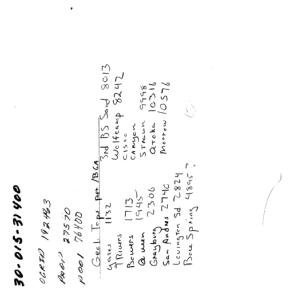 30-015-31400
OGRID 192463
POOL 27570
POOL 76400
Geol Tops per NBGA
Yates 1132
7 Rivers
Bowers 1713
Queen 1945
Grayburg 2306
San Andres 2740
Lovington Sd 2824
Bone Spring 4895?
3rd BS Sand 8013
Wolfcamp 8242
Cisco
Canyon
Strawn 9998
Atoka 10316
Morrow 10576